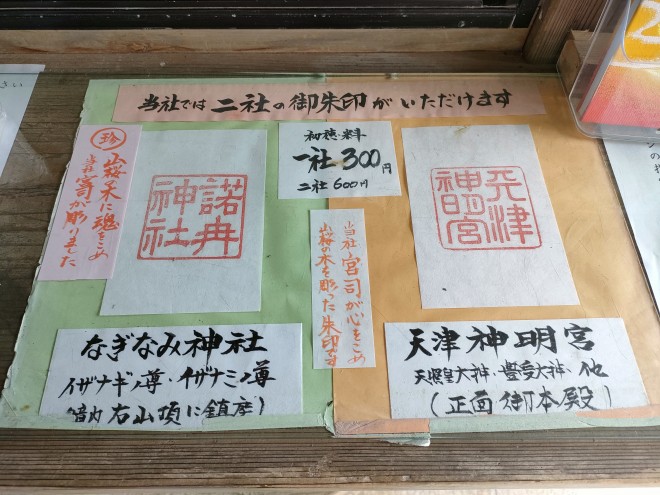 当社では 二社の御朱印がいただけます
㊟
山桜の木に魂をこめ
当社宮司が彫りました
諾冉
神社
初穂料
一社300円
二社600円
天津
神明宮
当社宮司が心をこめ
山桜の木を彫った朱印です
なぎなみ神社
イザナギノ尊・イザナミノ尊
右山頂に鎮座)
天津神明宮
天照皇大神・豊受大神・他
(正面御本殿)
さい
2